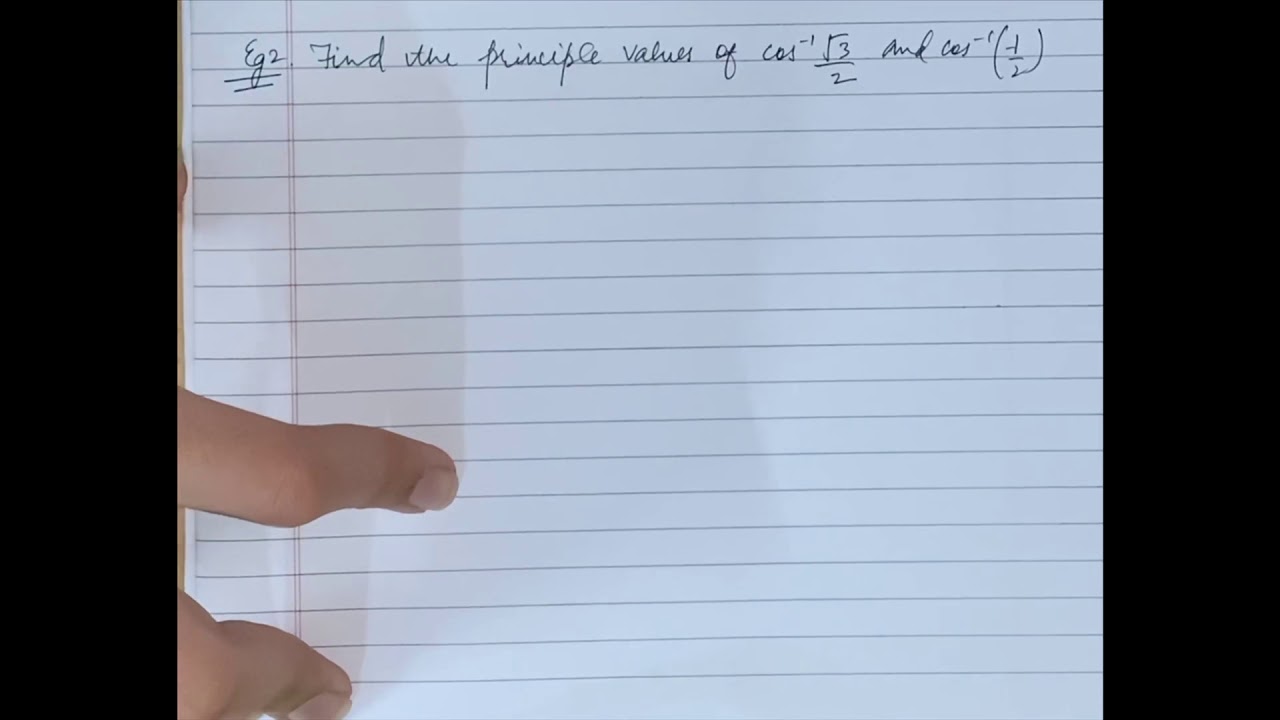 Eg2. Find the principle values of cos⁻¹ √3/2 and cos⁻¹(-1/2)